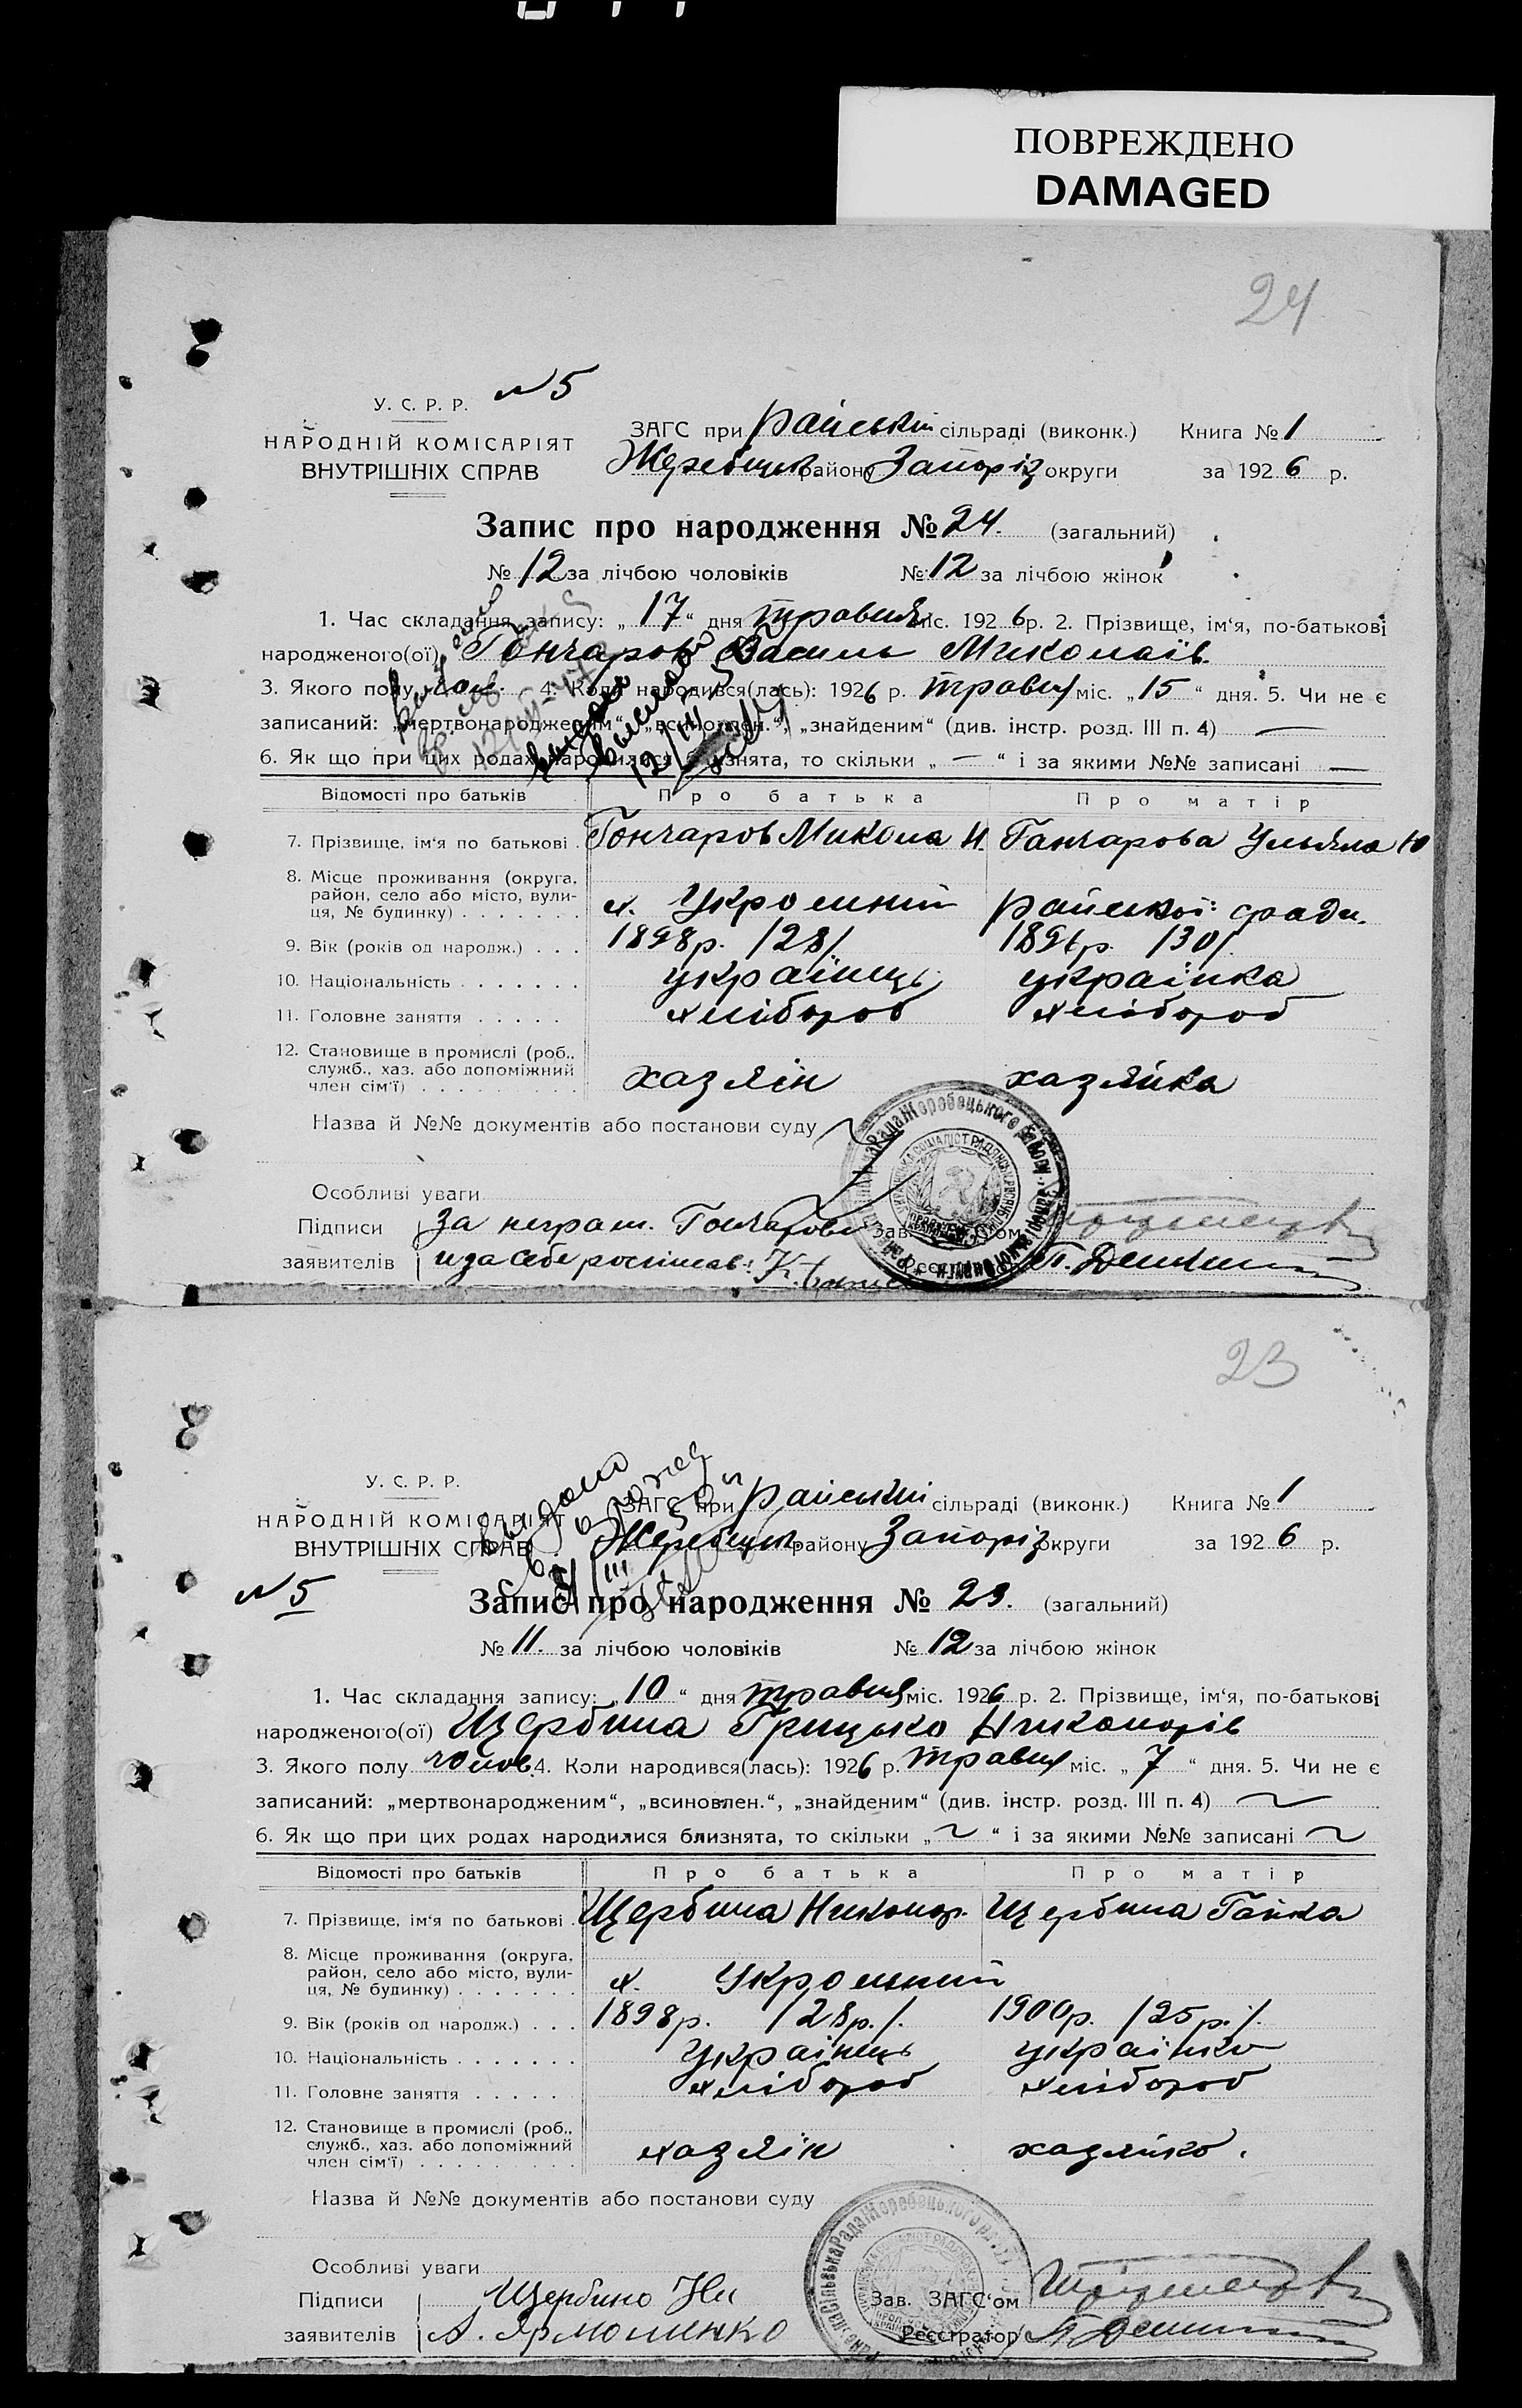 ПОВРЕЖДЕНО
DAMAGED
24
N 5
У. С. Р. Р.
НАРОДНІЙ КОМІСАРІЯТ
ВНУТРІШНІХ СПРАВ
ЗАГС при Райській сільраді (виконк.) Книга № 1
Жеребецьк. району Запоріз округи за 1926 р.
Запис про народження № 24. (загальний)
№ 12 за лічбою чоловіків № 12 за лічбою жінок
1. Час складання запису: „ 17 “ дня травня міс. 1926 р. 2. Прізвище, ім‘я, по-батькові
народженого(ої) Гончаров Василь Миколаїв.
3. Якого полу чол. 4. Коли народився(лась): 1926 р. травня міс. „ 15 “ дня. 5. Чи не є
записаний: „мертвонародженим“, „всиновлен.“, „знайденим“ (див. інстр. розд. III п. 4) —
6. Як що при цих родах народилися близнята, то скільки „ — “ і за якими №№ записані —
Відомості про батьків Про батька Про матір
7. Прізвище, ім‘я по батькові Гончаров Микола Н. Ганчарова Уляна Ю
8. Місце проживання (округа,
район, село або місто, вули-
ця, № будинку) х. Укромний Райської сради.
9. Вік (років од народж.) 1898р. /28/. 1896р. /30/.
10. Національність українець українка
11. Головне заняття хлібороб хлібороб
12. Становище в промислі (роб.,
служб., хаз. або допоміжний
член сім‘ї) хазяїн хазяйка
Назва й №№ документів або постанови суду
Особливі уваги
Підписи За неграм. Гончарова Зав. ЗАГС‘ом
заявителів и за себе росписав: Реєстратор
23
У. С. Р. Р.
НАРОДНІЙ КОМІСАРІЯТ
ВНУТРІШНІХ СПРАВ
N 5
ЗАГС при Райській сільраді (виконк.) Книга № 1
Жеребецьк. району Запоріз. округи за 1926 р.
Запис про народження № 23. (загальний)
№ 11. за лічбою чоловіків № 12 за лічбою жінок
1. Час складання запису: „ 10 “ дня травня міс. 1926 р. 2. Прізвище, ім‘я, по-батькові
народженого(ої) Щербина Грицько Никонорів
3. Якого полу чолов. 4. Коли народився(лась): 1926 р. травня міс. „ 7 “ дня. 5. Чи не є
записаний: „мертвонародженим“, „всиновлен.“, „знайденим“ (див. інстр. розд. III п. 4) ~
6. Як що при цих родах народилися близнята, то скільки „ ~ “ і за якими №№ записані ~
Відомості про батьків Про батька Про матір
7. Прізвище, ім‘я по батькові Щербина Никонор. Щербина Ганка
8. Місце проживання (округа,
район, село або місто, вули-
ця, № будинку) х. Укромний
9. Вік (років од народж.) 1898р. /28р./. 1900р. /25р./.
10. Національність Українець українка
11. Головне заняття хлібороб хлібороб
12. Становище в промислі (роб.,
служб., хаз. або допоміжний
член сім‘ї) хазяїн хазяйка.
Назва й №№ документів або постанови суду
Особливі уваги
Підписи Щербино Ни Зав. ЗАГС‘ом
заявителів А. Ярмоленко Реєстратор